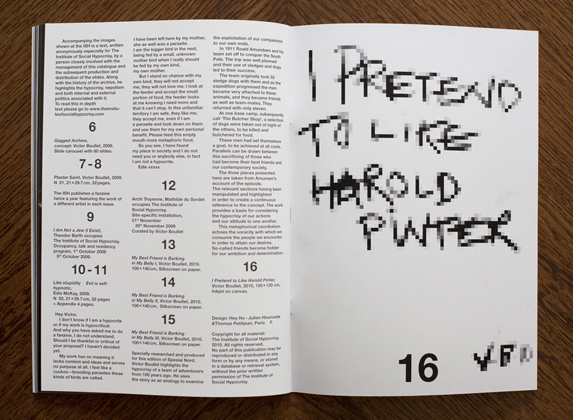 Accompanying the images
shown at the ISH is a text, written
anonymously especially for The
Institute of Social Hypocrisy, by a
person closely involved with the
management of this catalogue and
the subsequent production and
distribution of the slides. Along
with the history of the archive, he
highlights the hypocrisy, nepotism
and both internal and external
politics associated with it.
To read this in depth
text please go to www.theinstitu-
teofsocialhypocrisy.com
6
Gagged Archive,
concept: Victor Boullet, 2009.
Slide carousel with 80 slides.
7-8
Plaster Sand, Victor Boullet, 2009.
N 01, 21×29.7cm, 32 pages.
The ISH publishes a fanzine
twice a year featuring the work of
a different artist in each issue.
9
I Am Not a Jew (I Exist),
Theodor Barth occupies
The Institute of Social Hypocrisy.
Occupancy, talk and residency
program, 1st October 2009
5th October 2009.
10-11
Like stupido Evil is self-
hypnotic,
Edie McKay, 2009.
N 02, 21×29.7cm, 32 pages
+ Appendix 4 pages.
Hey Victor,
I don't know if I am a hypocrite
or if my work is hypocritical.
And why you have asked me to do
a fanzine, I do not understand.
Should I be thankful or critical of
your proposal? I haven't decided
yet.
My work has no meaning it
lacks content and ideas and serves
no purpose at all. I feel like a
cuckoo - brooding parasites these
kinds of birds are called.
I have been left here by my mother,
she as well was a parasite.
I am the bigger bird in the nest,
being fed by a small, unknown
mother bird when I really should
be fed by my own kind,
my own mother.
But I stand no chance with my
own kind, they will not accept
me, they will not love me. I look at
the feeder and accept the small
portion of food, the feeder looks
at me knowing I need more and
that it can't stop. In this unfamiliar
territory I am safe, they like me,
they accept me, even if I am
a parasite and look down on them
and use them for my own personal
benefit. Please feed this empty
mouth more metaphoric food.
So you see, I have found
my place in society and I do not
need you or anybody else, in fact
I am not a hypocrite.
Edie xxxxx
12
Archi Tryponne, Mathilde du Sordet
occupies The Institute of
Social Hypocrisy.
Site-specific installation,
21st November
30th November 2009
Curated by Victor Boullet.
13
My Best Friend is Barking
in My Belly I, Victor Boullet, 2010.
100×140cm, Silkscreen on paper.
14
My Best Friend is Barking
in My Belly II, Victor Boullet, 2010.
100×140cm, Silkscreen on paper.
15
My Best Friend is Barking
in My Belly III, Victor Boullet, 2010.
100×140cm, Silkscreen on paper.
Specially researched and produced
for this edition of Special Nord,
Victor Boullet highlights the
hypocrisy of a team of adventurers
from 100 years ago. He uses
the story as an analogy to examine
the exploitation of our companions
to our own ends.
In 1911 Roald Amundsen and his
team set off to conquer the South
Pole. The trip was well planned
and their use of sledges and dogs
led to their success.
The team originally took 52
sledge dogs with them and as the
expedition progressed the men
became very attached to these
animals, and they became friends
as well as team-mates. They
returned with only eleven.
At one base camp, subsequently
call 'The Butcher Shop', a selection
of dogs were taken out of sight of
the others, to be killed and
butchered for food.
These men had set themselves
a goal, to be achieved at all costs.
Parallels can be drawn between
this sacrificing of those who
had become their best friends and
our contemporary society.
The three pieces presented
here are taken from Amunsen's
account of the episode.
The relevant sections having been
manipulated and highlighted
in order to create a continuous
reference to the concept. The work
provides a basis for considering
the hypocrisy of our actions
and our attitude to one another.
This metaphorical cannibalism
echoes the voracity with which we
consume the people we encounter
in order to attain our desires.
So-called friends become fodder
for our ambition and determination.
16
I Pretend to Like Harold Pinter,
Victor Boullet, 2010, 100×120cm,
Inkjet on canvas.
Design: Hey Ho - Julien Hourcade
&Thomas Petitjean, Paris F.
Copyright for all material:
The Institute of Social Hypocrisy,
2010. All rights reserved.
No part of this publication may be
reproduced or distributed in any
form or by any means, or stored
in a database or retrieval system,
without the prior written
permission of The Institute of
Social Hypocrisy.
I PRETEND
TO LIKE
HAROLD
PINTER
16